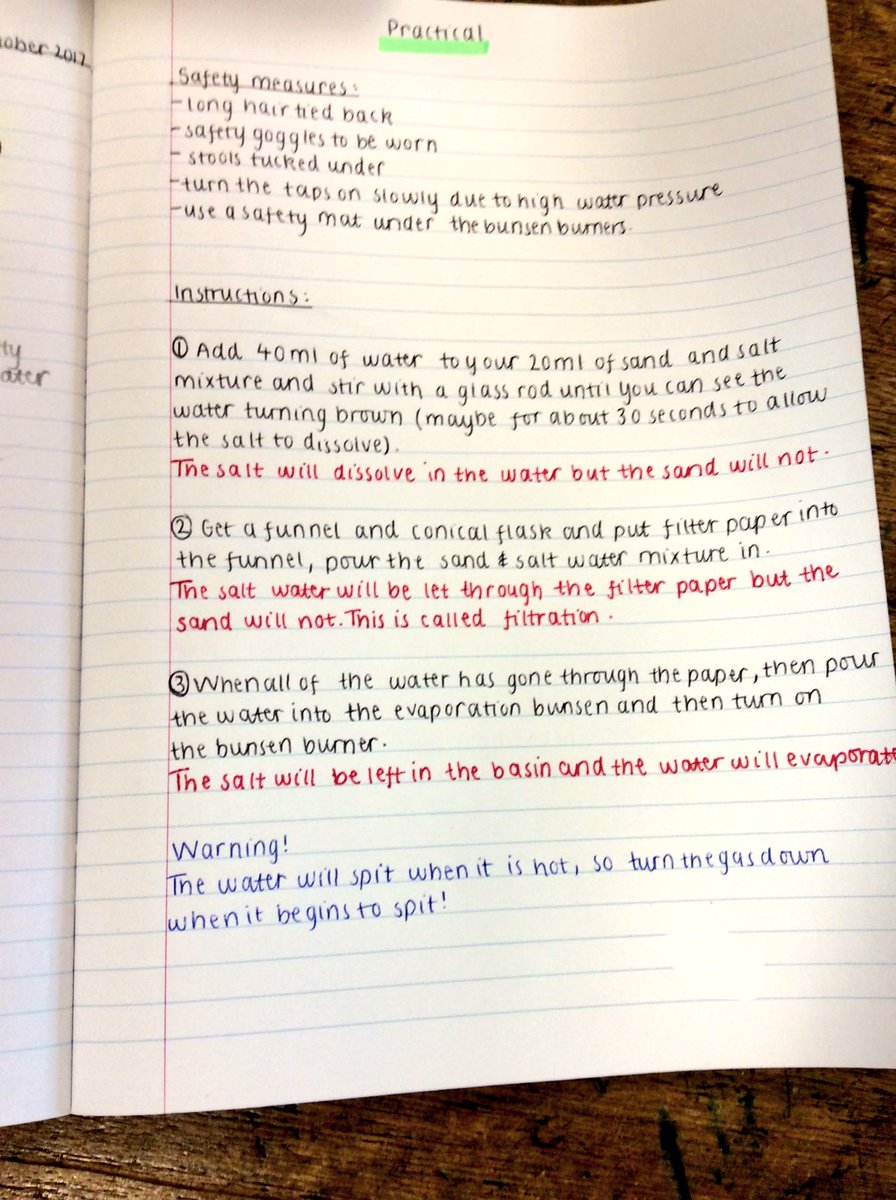 ober 2017
Practical
Safety measures:
-long hair tied back
-safety goggles to be worn
- stools tucked under
-turn the taps on slowly due to high water pressure
-use a safety mat under the bunsen burners.
Instructions:
① Add 40ml of water to your 20ml of sand and salt
mixture and stir with a glass rod until you can see the
water turning brown (maybe for about 30 seconds to allow
the salt to dissolve).
The salt will dissolve in the water but the sand will not.
② Get a funnel and conical flask and put filter paper into
the funnel, pour the sand & salt water mixture in.
The salt water will be let through the filter paper but the
sand will not. This is called filtration.
③ When all of the water has gone through the paper, then pour
the water into the evaporation bunsen and then turn on
the bunsen burner.
The salt will be left in the basin and the water will evaporate
Warning!
The water will spit when it is hot, so turn the gas down
when it begins to spit!
ty
ater